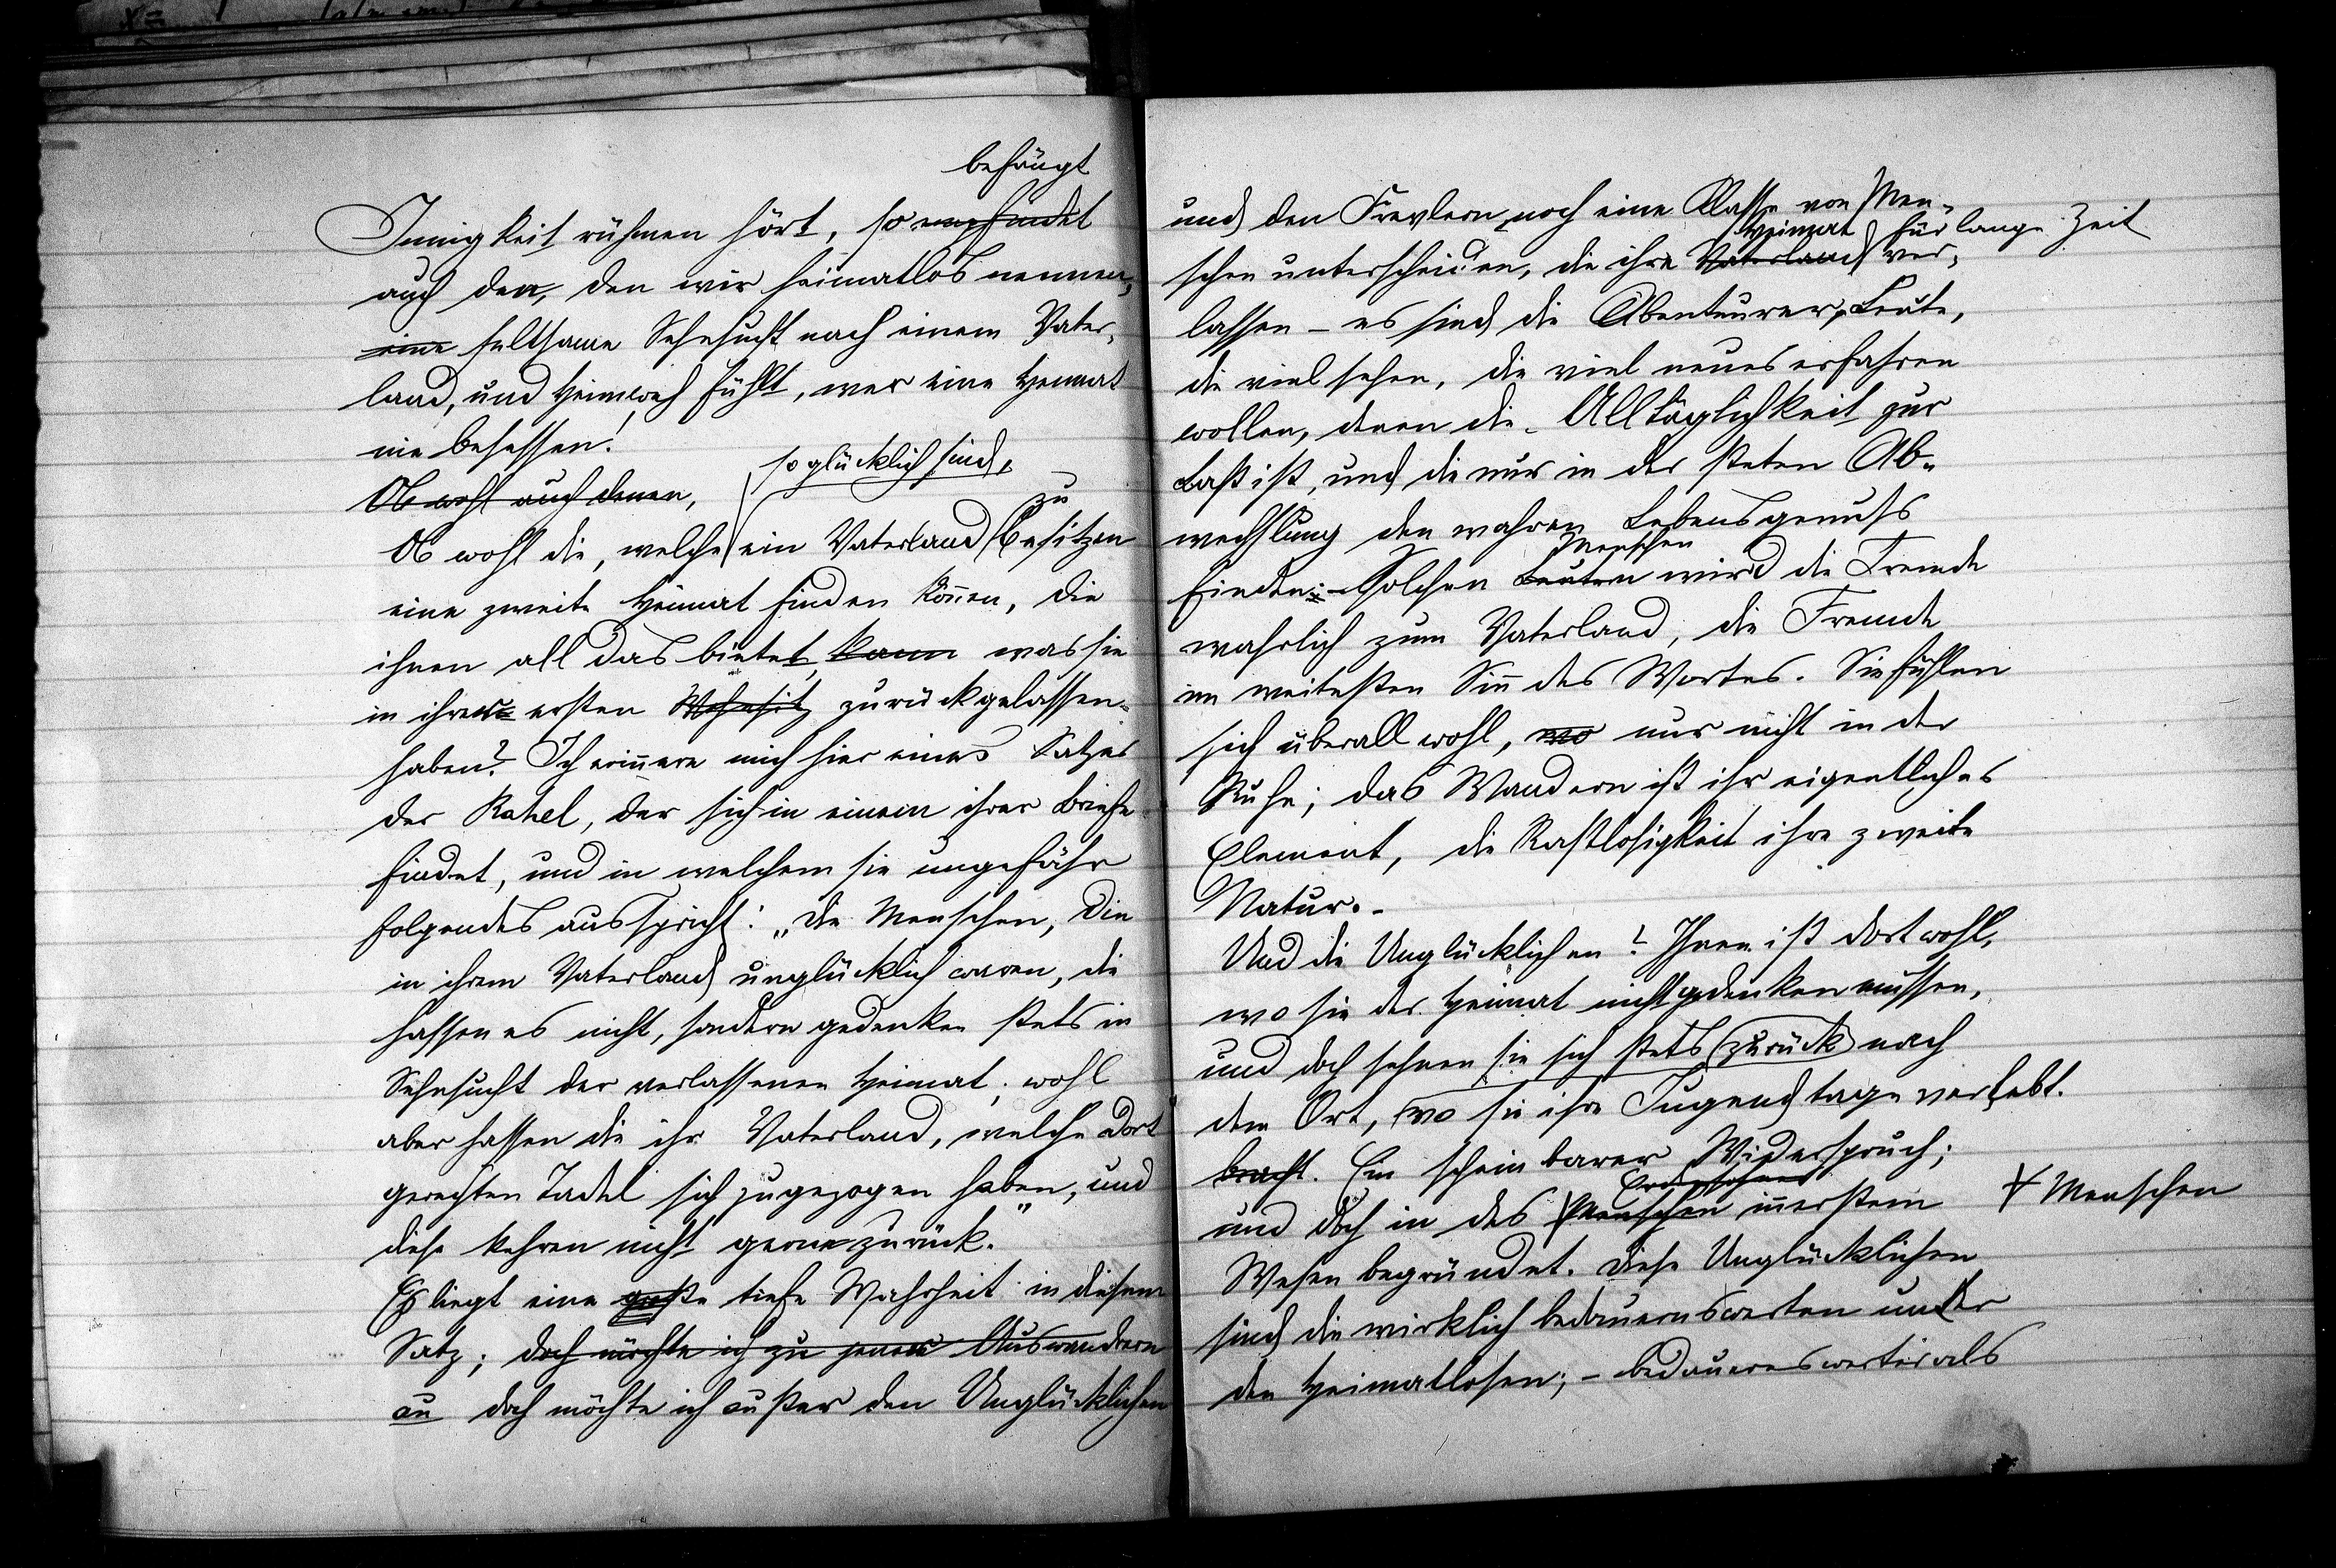 befängt
Innigkeit rühmen hört, so empfindet
auch der, den wir heimatlos nennen,
eine seltsame Sehnsucht nach einem Vater-
land, und Heimweh fühlt, wer eine Heimat
nie besessen!
so glücklich sind,
Ob wohl auch denen,
zu
Ob wohl die, welche ein Vaterland besitzen
eine zweite Heimat finden können, die
ihnen all das bietet, kann was sie
in ihrer ersten Wohnsitz zurückgelassen
haben? Ich erinnere mich hier eines Satzes
der Rahel, der sich in einem ihrer Briefe
findet, und in welchem sie ungefähr
folgendes ausspricht: „Die Menschen, die
in ihrem Vaterland unglücklich waren, die
hassen es nicht, sondern gedenken stets in
Sehnsucht der verlassenen Heimat; wohl
aber hassen die ihr Vaterland, welche dort
gerechten Tadel sich zugezogen haben, und
diese kehren nicht gerne zurück.“
Es liegt eine große tiefe Wahrheit in diesem
Satz; doch möchte ich zu jenen Auswandrern
au doch möchte ich außer den Unglücklichen
und den Frevlern noch eine Classe von Men-
Heimat für lange Zeit
schen unterscheiden, die ihre Vaterland ver-
lassen – es sind die Abenteurer, Leute,
die viel sehen, die viel neues erfahren
wollen, denen die Alltäglichkeit zur
Last ist, und die nur in der steten Ab-
wechslung den wahren Lebensgenuss
Menschen
finden: – Solchen Leuten wird die Fremde
wahrlich zum Vaterland, die Fremde
im weitesten Sinn des Wortes. Sie fühlen
sich überall wohl, wo nur nicht in der
Ruhe; das Wandern ist ihr eigentliches
Element, die Rastlosigkeit ihre zweite
Natur. –
Und die Unglücklichen? Ihnen ist dort wohl,
wo sie der Heimat nicht gedenken müssen,
und doch sehnen sie sich stets zurück nach
dem Ort, wo sie ihre Jugendtage verlebt.
bracht. Ein scheinbarer Widerspruch;
und doch in des Menschen innerstem
Menschen
Wesen begründet. Diese Unglücklichen
sind die wirklich bedauernswerten unter
den Heimatlosen; – bedauernswerter als